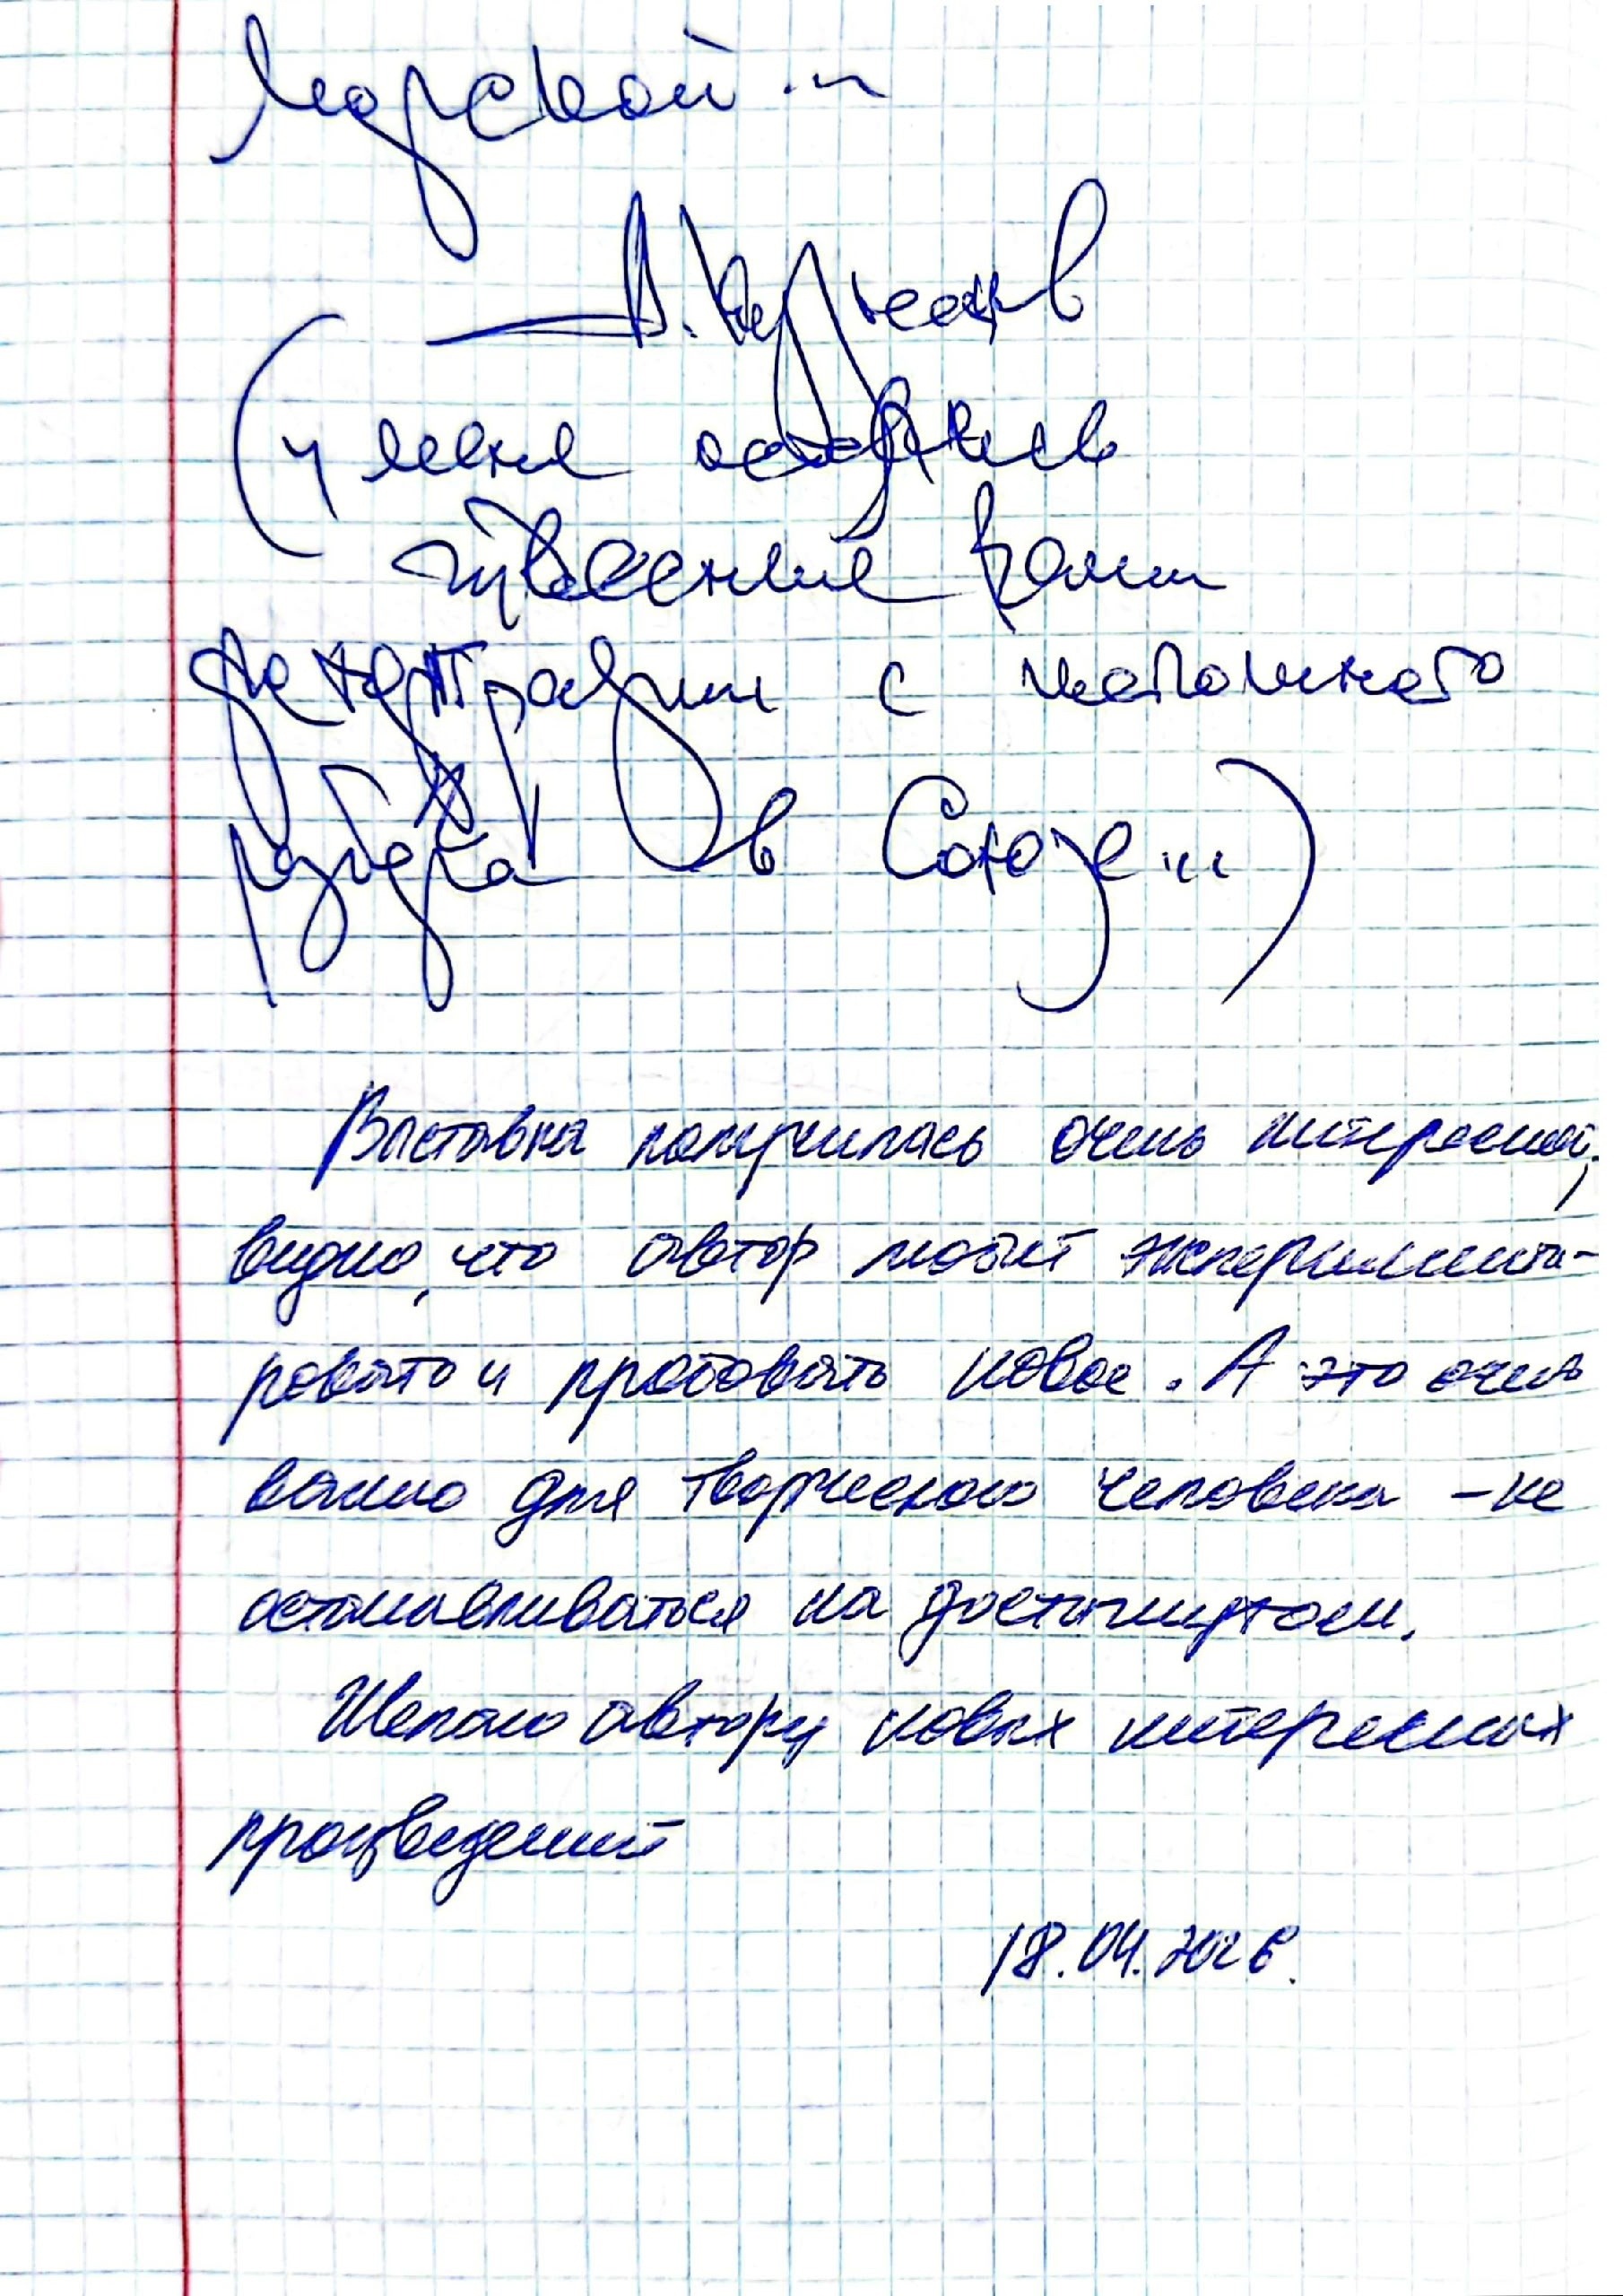 Морской...
(у меня остались
чудесные Ваши
фотографии с
в Союзе...)
Выставка получилась очень интересной,
видно, что автор любит эксперименти-
ровать и пробовать новое. А это очень
важно для творческого человека - не
останавливаться на достигнутом.
Желаю автору новых интересных
произведений
18.04.2026.